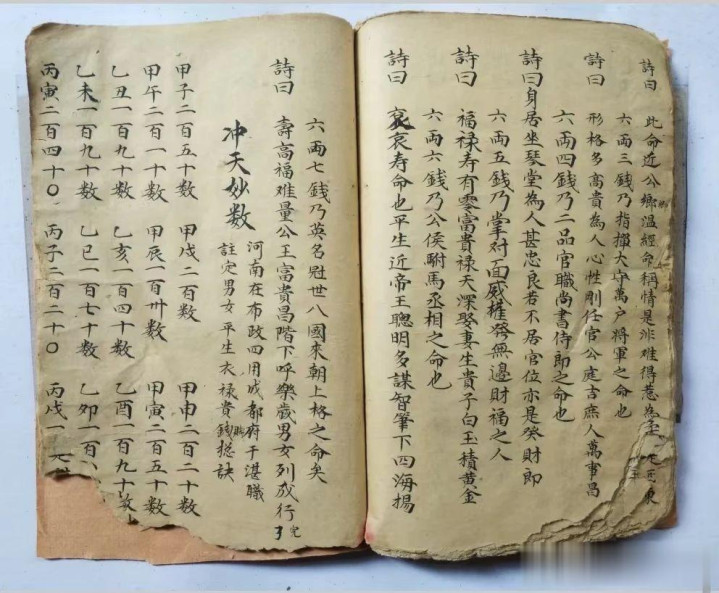 詩曰 此命近公鄉溫經命稱情是非难得惹為
六両三錢乃指揮大守萬户將軍之命也
詩曰 形格多高貴為人心性剛任官公庭言庶人萬事昌
六両四錢乃二品官職尚書侍郎之命也
詩曰身居坐琴堂為人甚忠良若不居官位亦是癸財郎
六両五錢乃掌对面威權癸無邊財福之人
詩曰 福禄寿有零富貴禄天深娶妻生貴子白玉積黄金
六両六錢乃公侯駙馬丞相之命也
詩曰 衮衮寿命也平生近帝王聰明多謀智筆下四海揚
六両七錢乃英名冠世八國來朝上格之命矣
詩曰 壽高福难量公王富貴昌階下呼樂歲男女列成行
完了
冲天妙数
河南在布政四用成都府于湛職
註定男女平生衣禄貴錢総訣
甲子二百五十数 甲戌二百数 甲申二百二十数
甲午二百一十数 甲辰一百卅数 甲寅二百五十数
乙丑一百九十数 乙亥一百四十数 乙酉一百九十数
乙未一百九十数 乙巳一百七十数 乙卯一百
丙寅二百四十〇 丙子二百二十〇 丙戌一